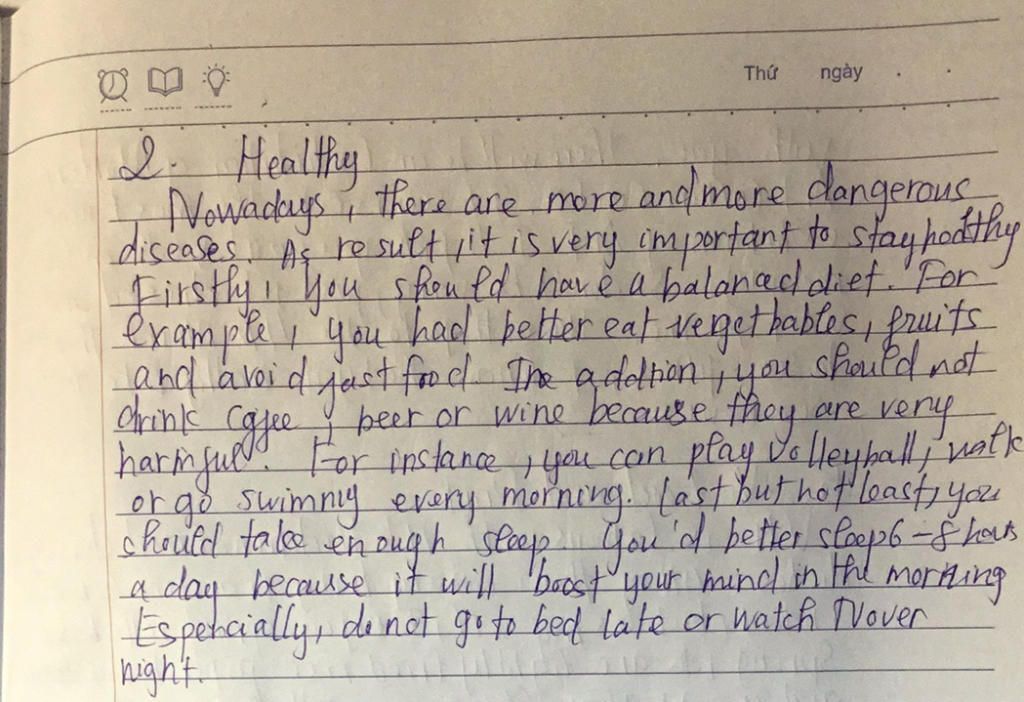 Thứ ngày . .
2. Healthy
Nowadays, there are more and more dangerous
diseases. As result, it is very important to stay healthy
Firstly, you should have a balanced diet. For
example, you had better eat vegethables, fruits
and avoid fast food. In addition, you should not
drink coffee, beer or wine because they are very
harmful. For instance, you can play volleyball, walk
or go swimming every morning. Last but not least, you
should take enough sleep. You'd better sleep 6-8 hours
a day because it will boost your mind in the morning
Espencially, do not go to bed late or watch TV over
night.